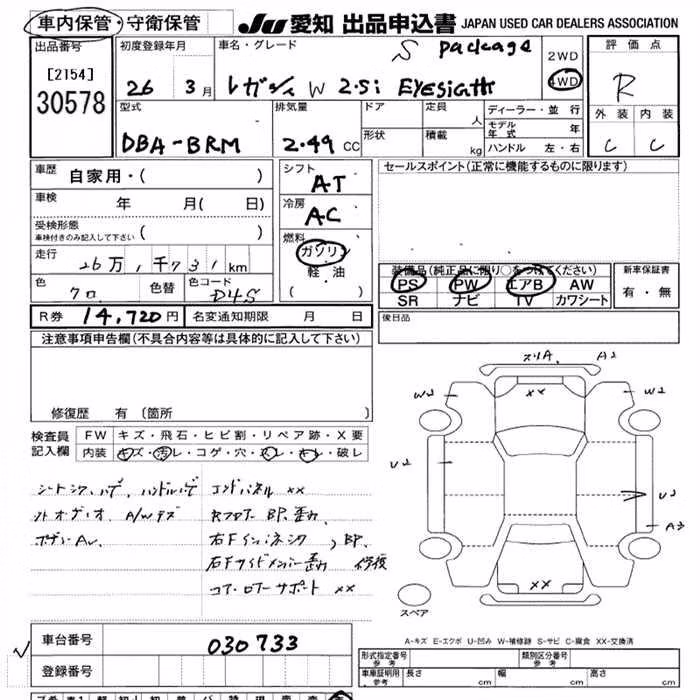 車内保管・守衛保管 JU 愛知 出品申込書 JAPAN USED CAR DEALERS ASSOCIATION
出品番号 初度登録年月 車名・グレード S package 2WD 評価点
[2154] 4WD
30578 26 3月 レガシィ W 2.5i EYESight R
型式 排気量 ドア 定員 人 ディーラー・並行 外装 内装
モデル年式 年
DBA-BRM 2.49 CC 形状 積載 kg ハンドル 左・右 C C
車歴 自家用・( ) シフト AT セールスポイント(正常に機能するものに限ります)
車検 年 月( 日) 冷房 AC
受検形態
車検付きのみ記入して下さい ( ) 燃料
走行 26万1千731km ガソリン 装備品(純正品に限り○をつけてください) 新車保証書
軽油 PS PW エアB AW 有・無
色 クロ 色替 色コード D4S ( ) SR ナビ TV カワシート
R券 14,720円 名変通知期限 月 日 後日品
注意事項申告欄(不具合内容等は具体的に記入して下さい)
修復歴 有 〔箇所 〕
検査員 FW キズ・飛石・ヒビ割・リペア跡・X要
記入欄 内装 キズ・汚レ・コゲ・穴・スレ・キレ・破レ
エンドパネル XX
A/Wキズ
右フロアー BP、歪ミ
BP、
右Fサイドメンバー歪ミ 修復
コア・ロアーサポート XX
スリA A2
XX
W2 W2
U2
U2
A3
XX
スペア
A-キズ E-エクボ U-凹み W-補修跡 S-サビ C-腐食 XX-交換済
車台番号 030733
登録番号
形式指定番号 参考 類別区分番号 参考
車車証明用 参考 長さ cm 幅 cm 高さ cm